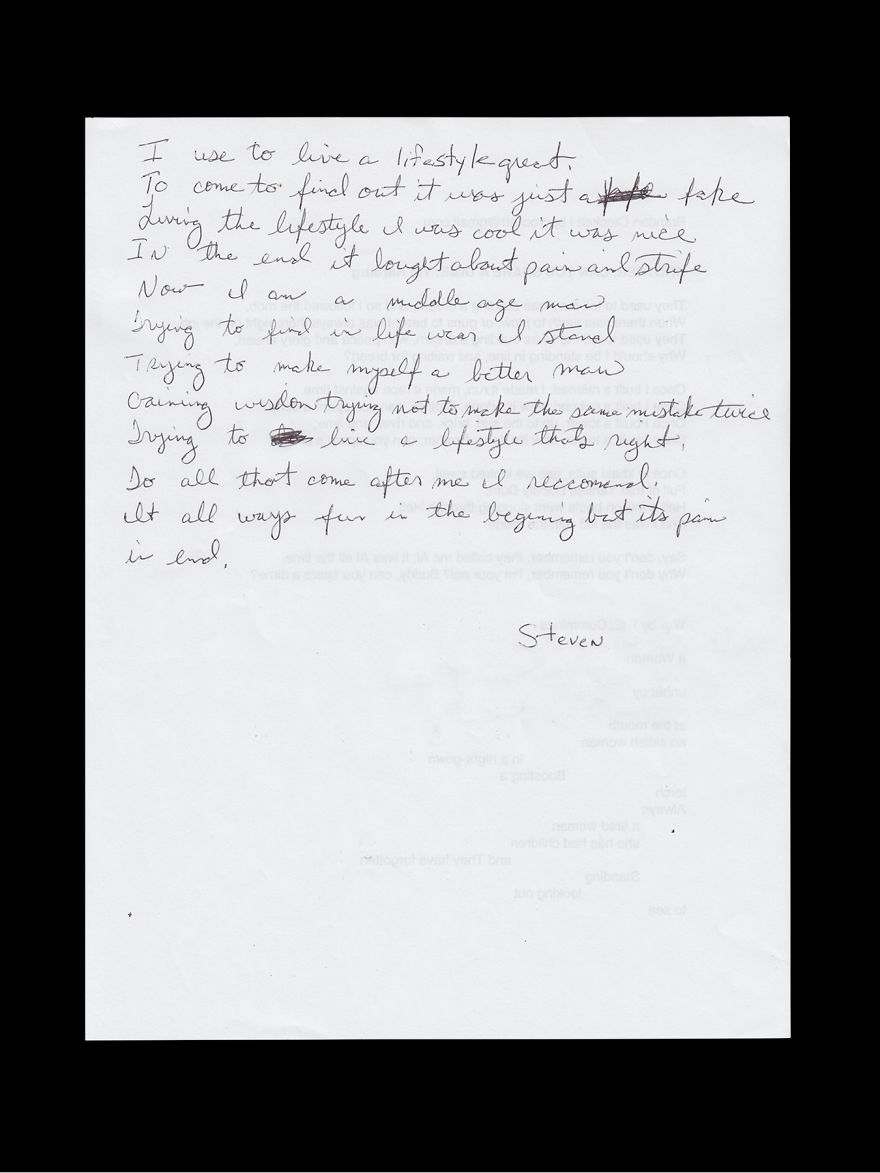 I use to live a lifestyle great.
To come to find out it was just a fake
Living the lifestyle I was cool it was nice
In the end it bought about pain and strife
Now I am a middle age man
Trying to find in life wear I stand
Trying to make myself a better man
Gaining wisdom trying not to make the same mistake twice
Trying to live a lifestyle thats right.
To all that come after me I reccomend.
It all ways fun in the begining but its pain
in end.
Steven